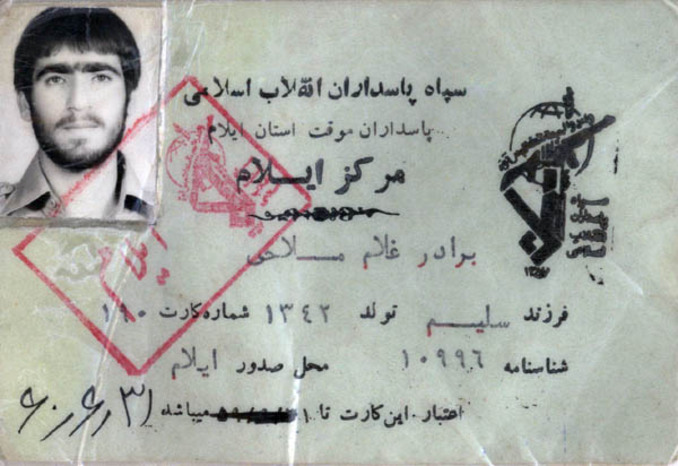 سپاه پاسداران انقلاب اسلامی
پاسداران موقت استان ایلام
مرکز ایلام
برادر غلام ملاحی
فرزند سلیم تولد ۱۳۴۲ شماره کارت ۱۹۰
شناسنامه ۱۰۹۹۶ محل صدور ایلام
اعتبار این کارت تا میباشد
۶۰٫۶٫۳۱